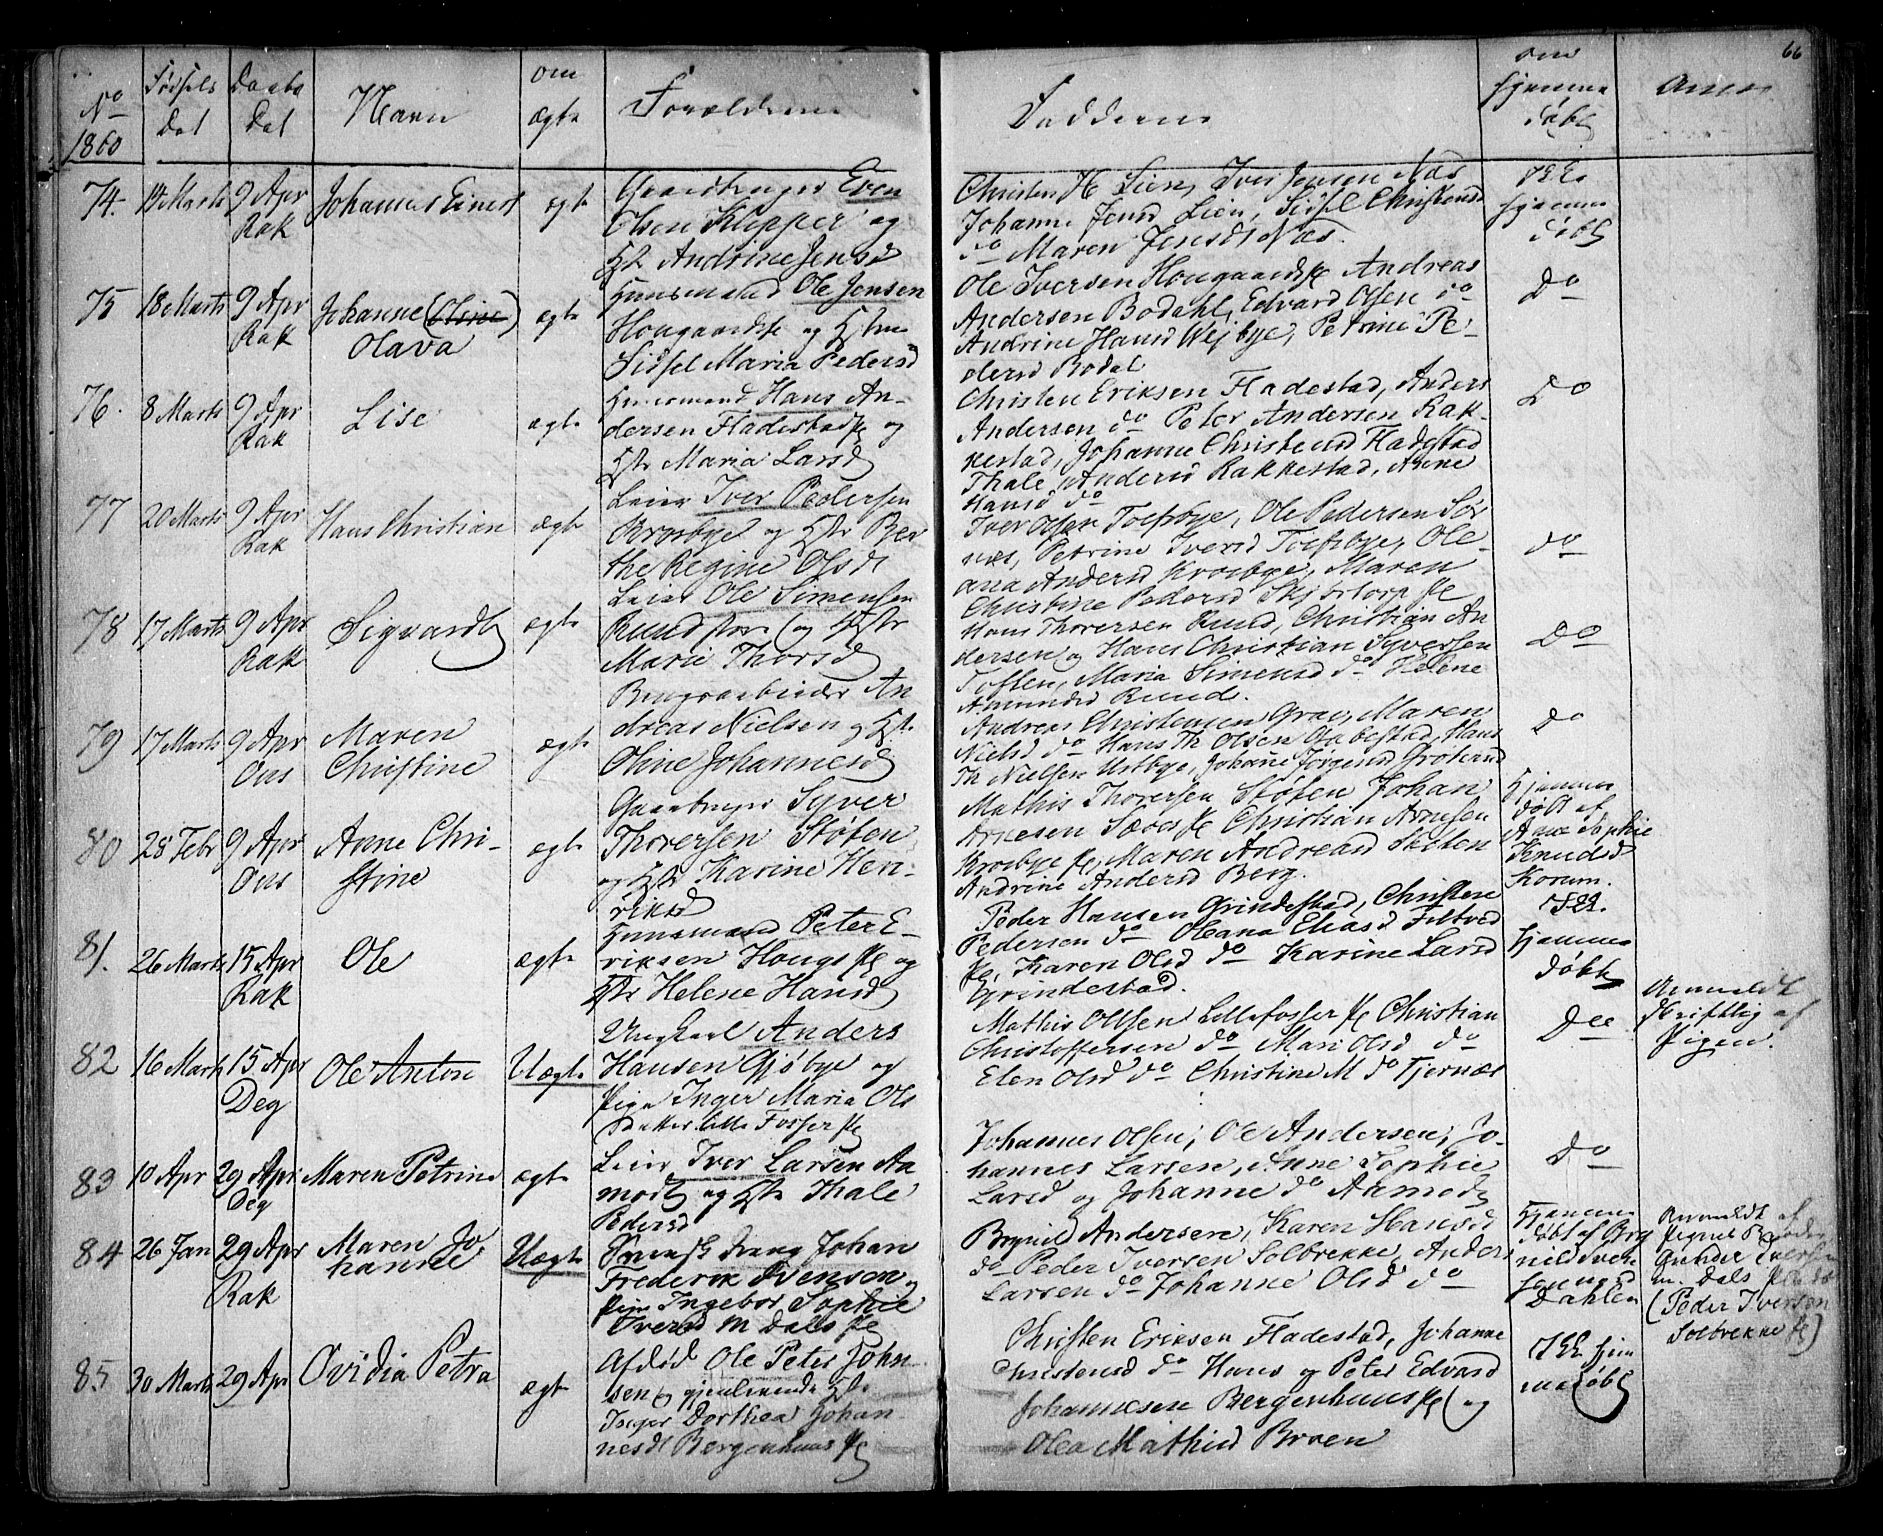 66
No
1860
Fødsels
Dat
Daabs
Dat
Navn
om
ægte
Forældrene
Fadderne
om
hjemme
døbt
Anm
74. 14 Marts 9 Apr
Rak
Johannes Einert
ægt
Gaardbruger Even
Olsen Klypper og
Hst Andrine Jensd
Christen H Lien, Iver Jensen Næs
Johanne Jensd Lien, Sidsel Christensd
do Maren Jensdt Næs.
Ikke
hjemme
døbt
75 18 Marts 9 Apr
Rak
Johanne (Oline)
Olava
ægt
Huusmand Ole Jensen
Hougaardsje og Hstru
Sidsel Maria Pedersd
Ole Iversen Hougaardsje Andreas
Andersen Bodahl, Edvard Olsen do
Andrine Hansd Wejbye, Petrine Pe-
dersd Bodal
Do
76. 8 Marts 9 Apr
Rak
Lise
ægt
Huusmand Hans An-
dersen Fladestadje og
Hst Maria Larsd
Christen Eriksen Fladestad, Anders
Andersen do Peter Andersen Rak-
kestad, Johanne Christensd Fladestad
Thale Andersd Rakkestad, Anne
Hansd do
Do
77 20 Marts 9 Apr
Rak
Hans Christian
ægt
Leier Iver Pedersen
Krosbye og Hstr Ber
the Regine Olsdt
Iver Olsen Toftbye, Ole Pedersen Sør
næs, Petrine Iversd Toftbye, Ole-
ana Andersd Krosbye, Maren
Christine Pedersd Skjörtorp je
Do
78 17 Marts 9 Apr
Rak
Sigvardt
ægt
Leier Ole Simensen
Ruud og Hstr
Marie Thorsd
Hans Thoresen Ruud, Christian An
dersen og Hans Christian Syversen
Toften, Maria Simensd do Helene
Amundsd Ruud.
Do
79 17 Marts 9 Apr
Ous
Maren
Christine
ægt
Brugsarbeider An
dreas Nielsen og Hst
Oline Johannesd
Andreas Christensen Grav, Maren
Nielsd do Hans Th Olsen Gabestad, Hans
Th Nielsen Ustbye, Johane Jørgensd Grøtund
Do
80 28 Febr 9 Apr
Ous
Anne Chri-
stine
ægt
Gaardbruger Syver
Thoresen Støten
og Hst Karine Hen-
riksd
Mathis Thoresen Støten Johan
Arnesen Sæves je Christian Arnesen
Krosbye je, Maren Andreasd Støten
Andrine Andersd Berg.
Hjemme
døbt af
Anne Sophie
Knudsd
Korum.
81. 26 Marts 15 Apr
Rak
Ole
ægt
Huusmand Peter E-
riksen Hougs je og
Hstr Helene Hansd
Peder Hansen Grindestad, Christen
Pedersen do Oleana Eliasd Filtved
je, Karen Olsd do Karine Larsd
Grindestad.
Ikke
hjemme
døbt
82 16 Marts 15 Apr
Deg
Ole Anton
Uægt
Ungkarl Anders
Hansen Gjøbye og
Pige Inger Maria Ols
Datter lille Fosser je
Mathis Olsen Lillefosser je Christian
Christoffersen do Mari Olsd do
Elen Olsd do Christine M do Tjernæs
Do
Anmeldt
skriftlig af
Pigen.
83 10 Apr 29 Apr
Deg
Maren Petrine
ægt
Leier Iver Larsen Aa
modt og Hst Thale
Pedersd
Johannes Olsen, Ole Andersen, Jo-
hannes Larsen, Anne Sophie
Larsd og Johanne do Aamodt
Do
84 26 Jan 29 Apr
Rak
Maren Jo
hanne
Uægt
Svensk dreng Johan
Frederik Svenson og
Pige Ingebor Sophie
Iversd M Dals je
Brynild Andersen, Karen Hansd
do Peder Iversen Solbrekke, Anders
Larsen do Johanne Olsd do
Hjemme
døbt af Bry
nild
Dahlen
Anmeldt af
Pigens Broder
Gunder Iversen
m. Dals je
(Peder Iversen
Solbrekke je)
85. 30 Marts 29 Apr
Ovidia Petra
ægt
Afdød Ole Peter John
sen og gjenlevende Hst
Inger Dorthea Johan-
nesdt Bergenhuus je
Christen Eriksen Fladestad, Johanne
Christensd do Hans og Peter Edvard
Johannesen Bergenhuus je og
Olea Mathisd Broen
Ikke hjem
medøbt